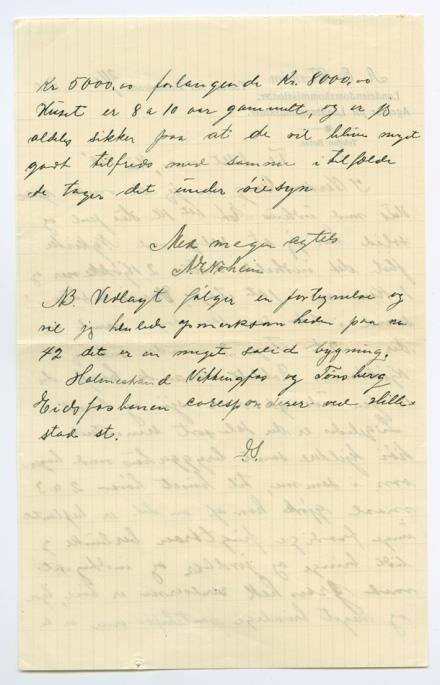 Kr 5000,00 forlangende Kr. 8000,00
Huset er 8 a 10 aar gammelt, og er jeg
aldeles sikker paa at de vil blive meget
godt tilfreds med samme i tilfælde
de tager det under øiesyn
Med megen agtelse
NB. Vedlagt følger en fortegnelse og
vil jeg henlede opmerksomheden paa no
42 det er en meget solid bygning.
Holmestrand Vittingfos og Tønsberg
Eidsfosbanen coresponderer ved Hille-
stad st.